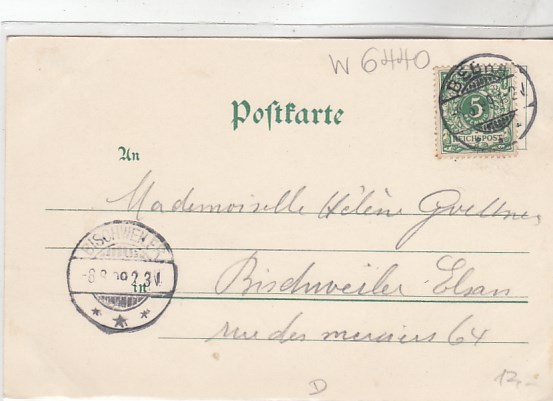 W 6440
Postkarte
5
REICHSPOST
An
Mademoiselle Hélène
BISCHWEILER
-8.8.
in
Bischweiler Elsass
rue des merciers 64
D
12,-